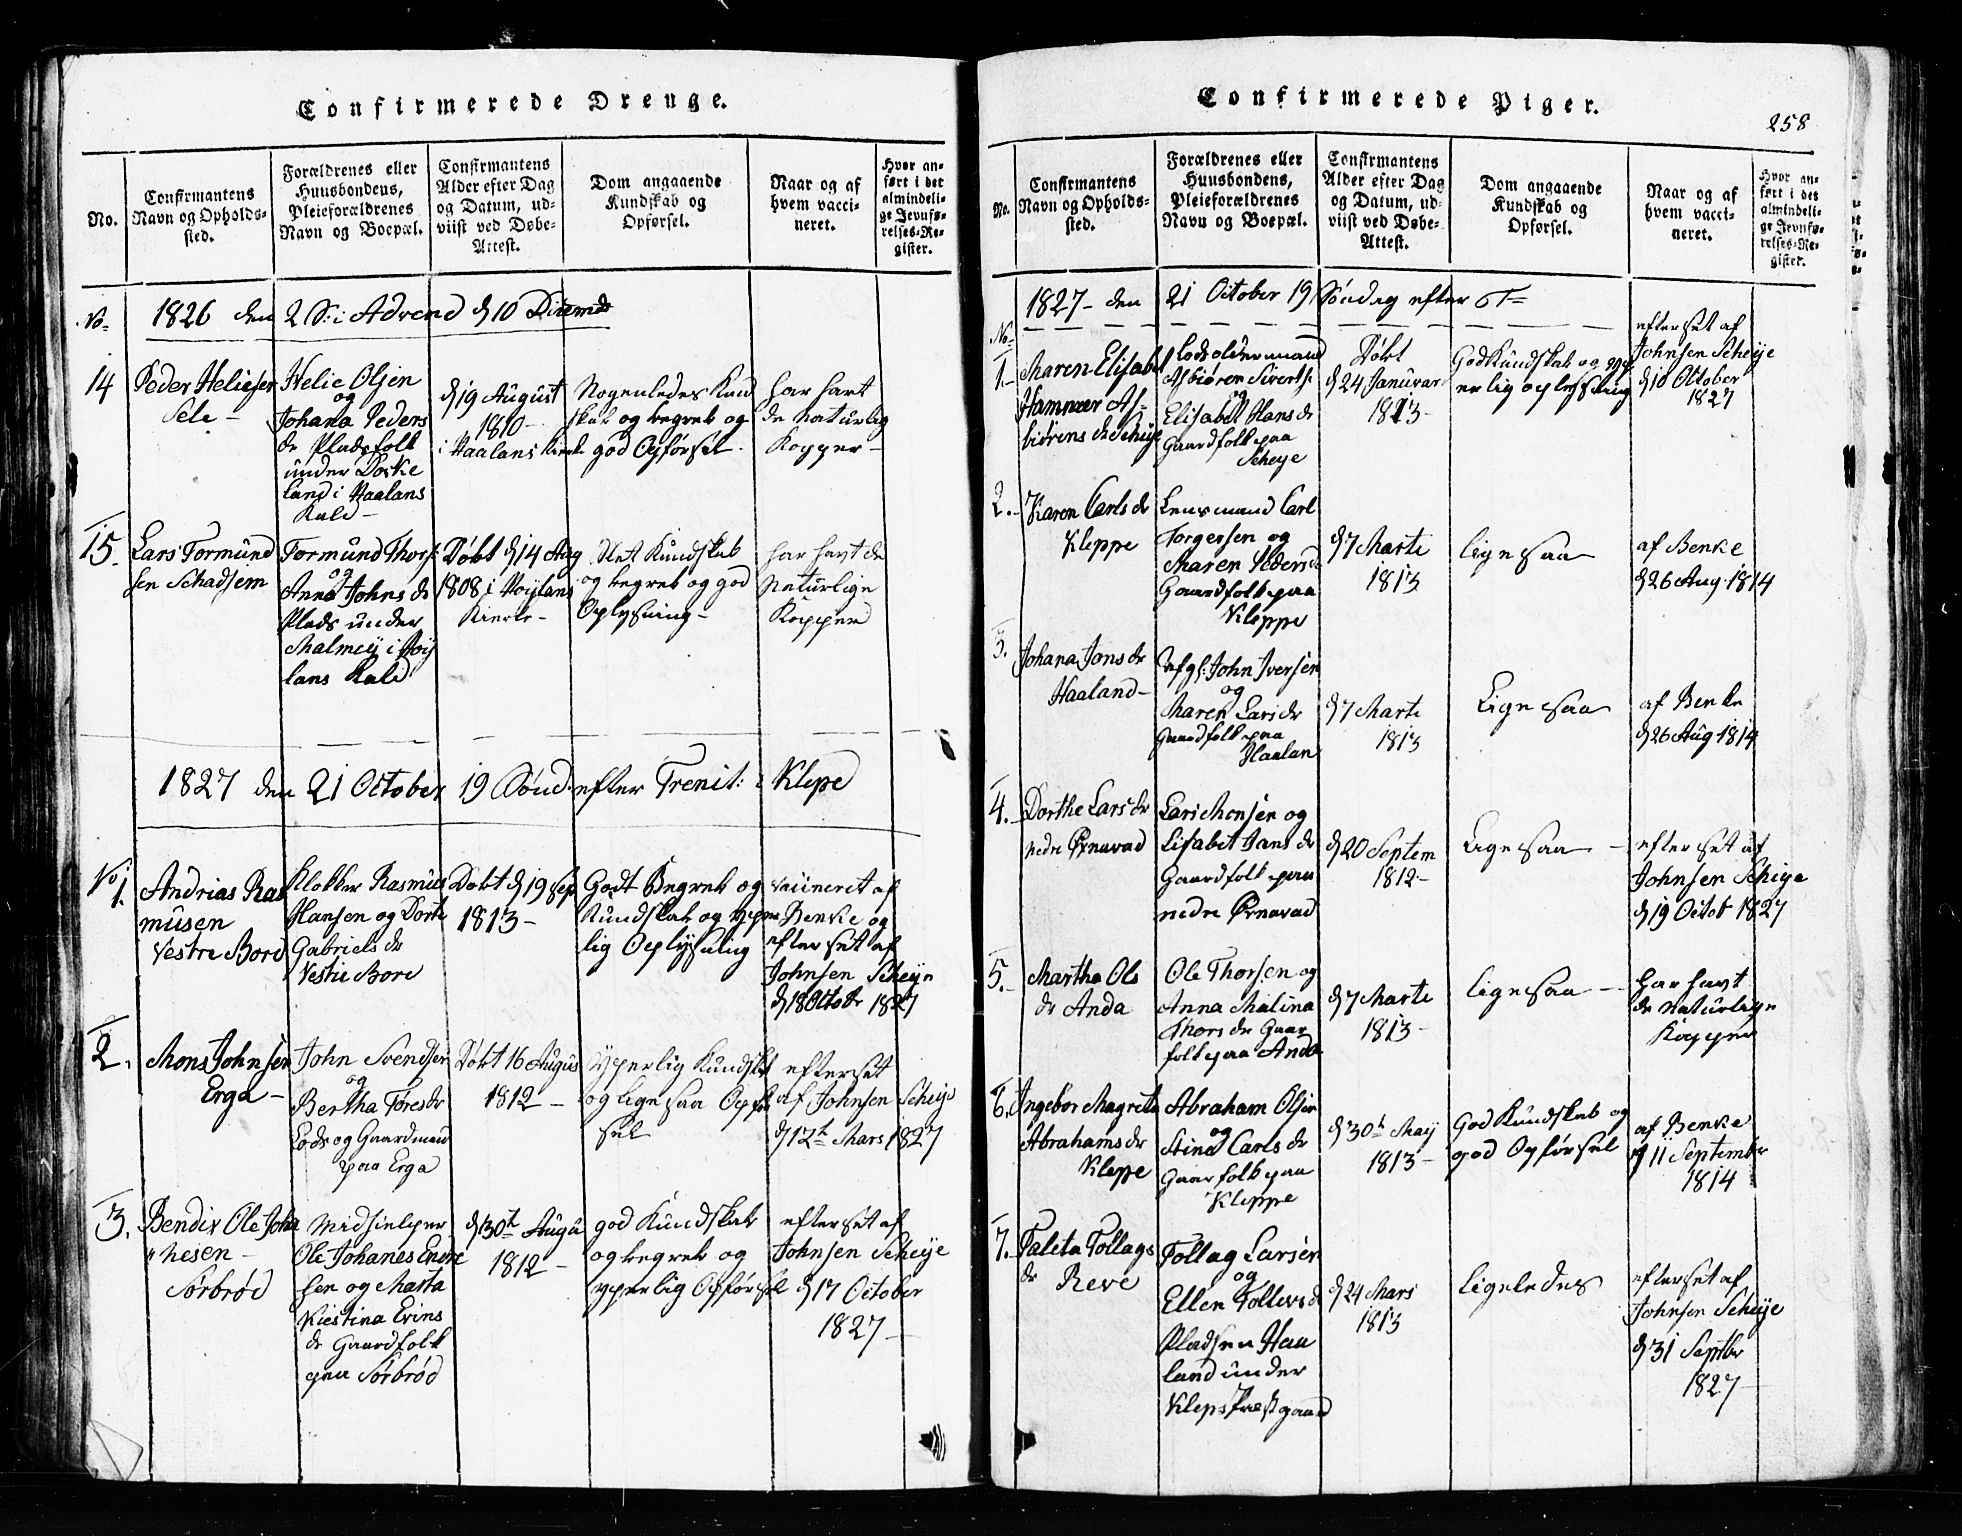 Confirmerede Drenge.
No.
Confirmantens
Navn og Opholds-
sted.
Forældrenes eller
Huusbondens,
Pleieforældrenes
Navn og Boepæl.
Confirmantens
Alder efter Dag
og Datum, ud-
viist ved Døbe-
Attest.
Dom angaaende
Kundskab og
Opførsel.
Naar og af
hvem vacci-
neret.
Hvor an-
ført i det
almindeli-
ge Jevnfø-
relses-Re-
gister.
No- 1826 den 2 S: i Advend d 10 Decemdr
14
Peder Heliesen
Sele -
Helie Olsen
og
Johana Peders
dr Pladsfolk
under
Land i Haalans
Kald -
d 19 August
1810 -
i Haalans Kierke
Nogenledes Kund
skab og begreb og
god Opførsel.
har havt
de naturlig
Kopper -
15.
Lars Tormund
sen Schadsem
Tormund Thors:
og
Anna Johns dr
Plads under
Malmeij i Høij
lans Kald
Døbt d 14 Aug
1808 i Høijlans
Kierke -
Slet Kundskab
og begreb og god
Oplysning -
har havt de
Naturlige
Kopper
1827 den 21 October 19 Sønd. efter Trenit: i Klepe
No 1.
Andrias Ras
musen
Vestre Bord
Klokker Rasmus
Hansen og Dorte
Gabriels dr
Vestre Bore
Døbt d 19 Sep
1813 -
Godt Begreb og
Kundskab og yper
lig Oplysning
vaccineret af
Benke og
efterset af
Johnsen Scheije
d 18 Octobr 1827
2.
Mons Johnsen
Erga -
John Svendsen
og
Bertha Tores dr
Lods og Gaardmand
paa Erga
Døbt 16 Augus
1812 -
Yperlig Kundskb
og lige saa Opfør
sel
efterset
af Johnsen Scheije
d 12te Mars 1827
3.
Bendix Ole Joha
" nesen -
Sørbrød
Ole Johanes Endre
sen og Marta
Kiestina Evins
dr Gaardfolk
paa Sørbrød
d 30te Augu
1812 -
god Kundskab
og begreb og
yperlig Opførsel
efterset af
Johnsen Scheije
d 17 October
1827 -
Confirmerede Piger.
258
No.
Confirmantens
Navn og Opholds-
sted.
Forældrenes eller
Huusbondens,
Pleieforældrenes
Navn og Boepæl.
Confirmantens
Alder efter Dag
og Datum, ud-
viist ved Døbe-
Attest.
Dom angaaende
Kundskab og
Opførsel.
Naar og af
hvem vacci-
neret.
Hvor an-
ført i det
almindeli-
ge Jevnfø-
relses-Re-
gister.
1827 - den 21 October 19 Søndag efter T=
No-
1.-
Maren Elisabet
Hammer As-
biørens dr Scheije
Lods oldermand
Asbiøren Sivertsen
og
Elisabet Hans dr
Gaardfolk paa
Scheije
Døbt
d 24 Januvari
1813 -
God Kundskab og yp
erlig oplysning
efterset af
Johnsen Scheije
d 10 October
1827
2.-
Karen Carls dr
Kleppe
Lensmand Carl
Torgersen og
Maren Peders dr
Gaardfolk paa
Kleppe
d 7 Marti
1813
lige saa
af Benke
d 26 Aug. 1814
3.
Johana Jons dr
Haaland -
afg: John Iversen
og
Maren Lars dr
Gaardfolk paa
Haalan
d 7 Marti
1813
Lige saa
af Benke
d 26 Aug 1814
4.-
Dorthe Lars dr
nedre Ørnavad
Lars Monsen og
Lisabet Jans dr
Gaardfolk paa
nedre Ørnavad
d 20 Septem
1812 -
Lige saa -
efterset af
Johnsen Scheije
d 19 Octob 1827
5.-
Martha Ols
dr Anda
Ole Thorsen og
Anna Malina
Thors dr Gaar
folk paa Anda
d 7 Marti
1813 -
lige saa -
har havt
de naturlige
Kopper
6.
Ingebor Magreta
Abrahams dr
Kleppe
Abraham Olsen
og
Stina Carls dr
Gaarfolk paa
Kleppe
d 30te Maij
1813 -
God Kundskab og
god Opførsel
af Benke
d 11 September
1814
7.-
Talita Tollags
dr Reve
Tollag Larsen
og
Ellen Tollevs dr
Pladsen Haa
land under
Kleps Præstgaard
d 24 Mars
1813
ligeledes
efterset af
Johnsen Scheije
d 31 Septbr
1827 -